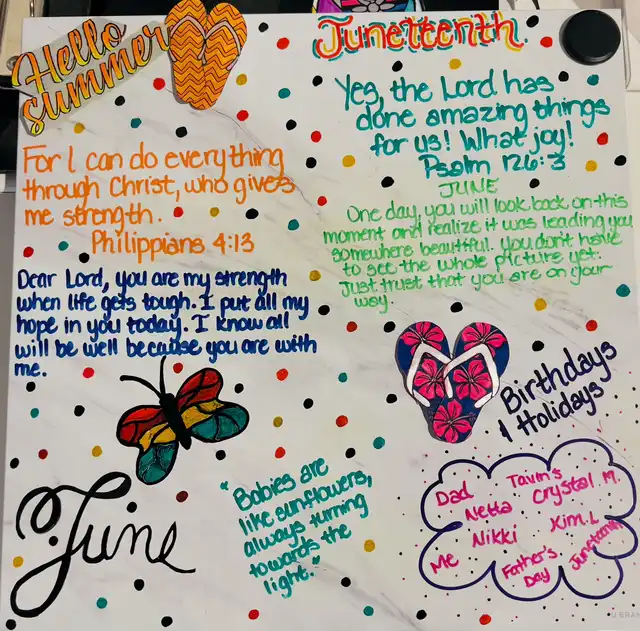 Hello
Summer
Juneteenth.
Yes, the Lord has
done amazing things
for us! What joy!
Psalm 126:3
For I can do everything
through Christ, who gives
me strength.
Philippians 4:13
JUNE
One day, you will look back on this
moment and realize it was leading you
somewhere beautiful. You don't have
to see the whole picture yet.
Just trust that you are on your
way.
Dear Lord, you are my strength
when life gets tough. I put all my
hope in you today. I know all
will be well because you are with
me.
Birthdays
& Holidays
June
"Babies are
like sunflowers,
always turning
towards the
light."
Dad
Netta
Crystal M.
Me
Nikki
Kim.L
Father's
Day
Juneteenth